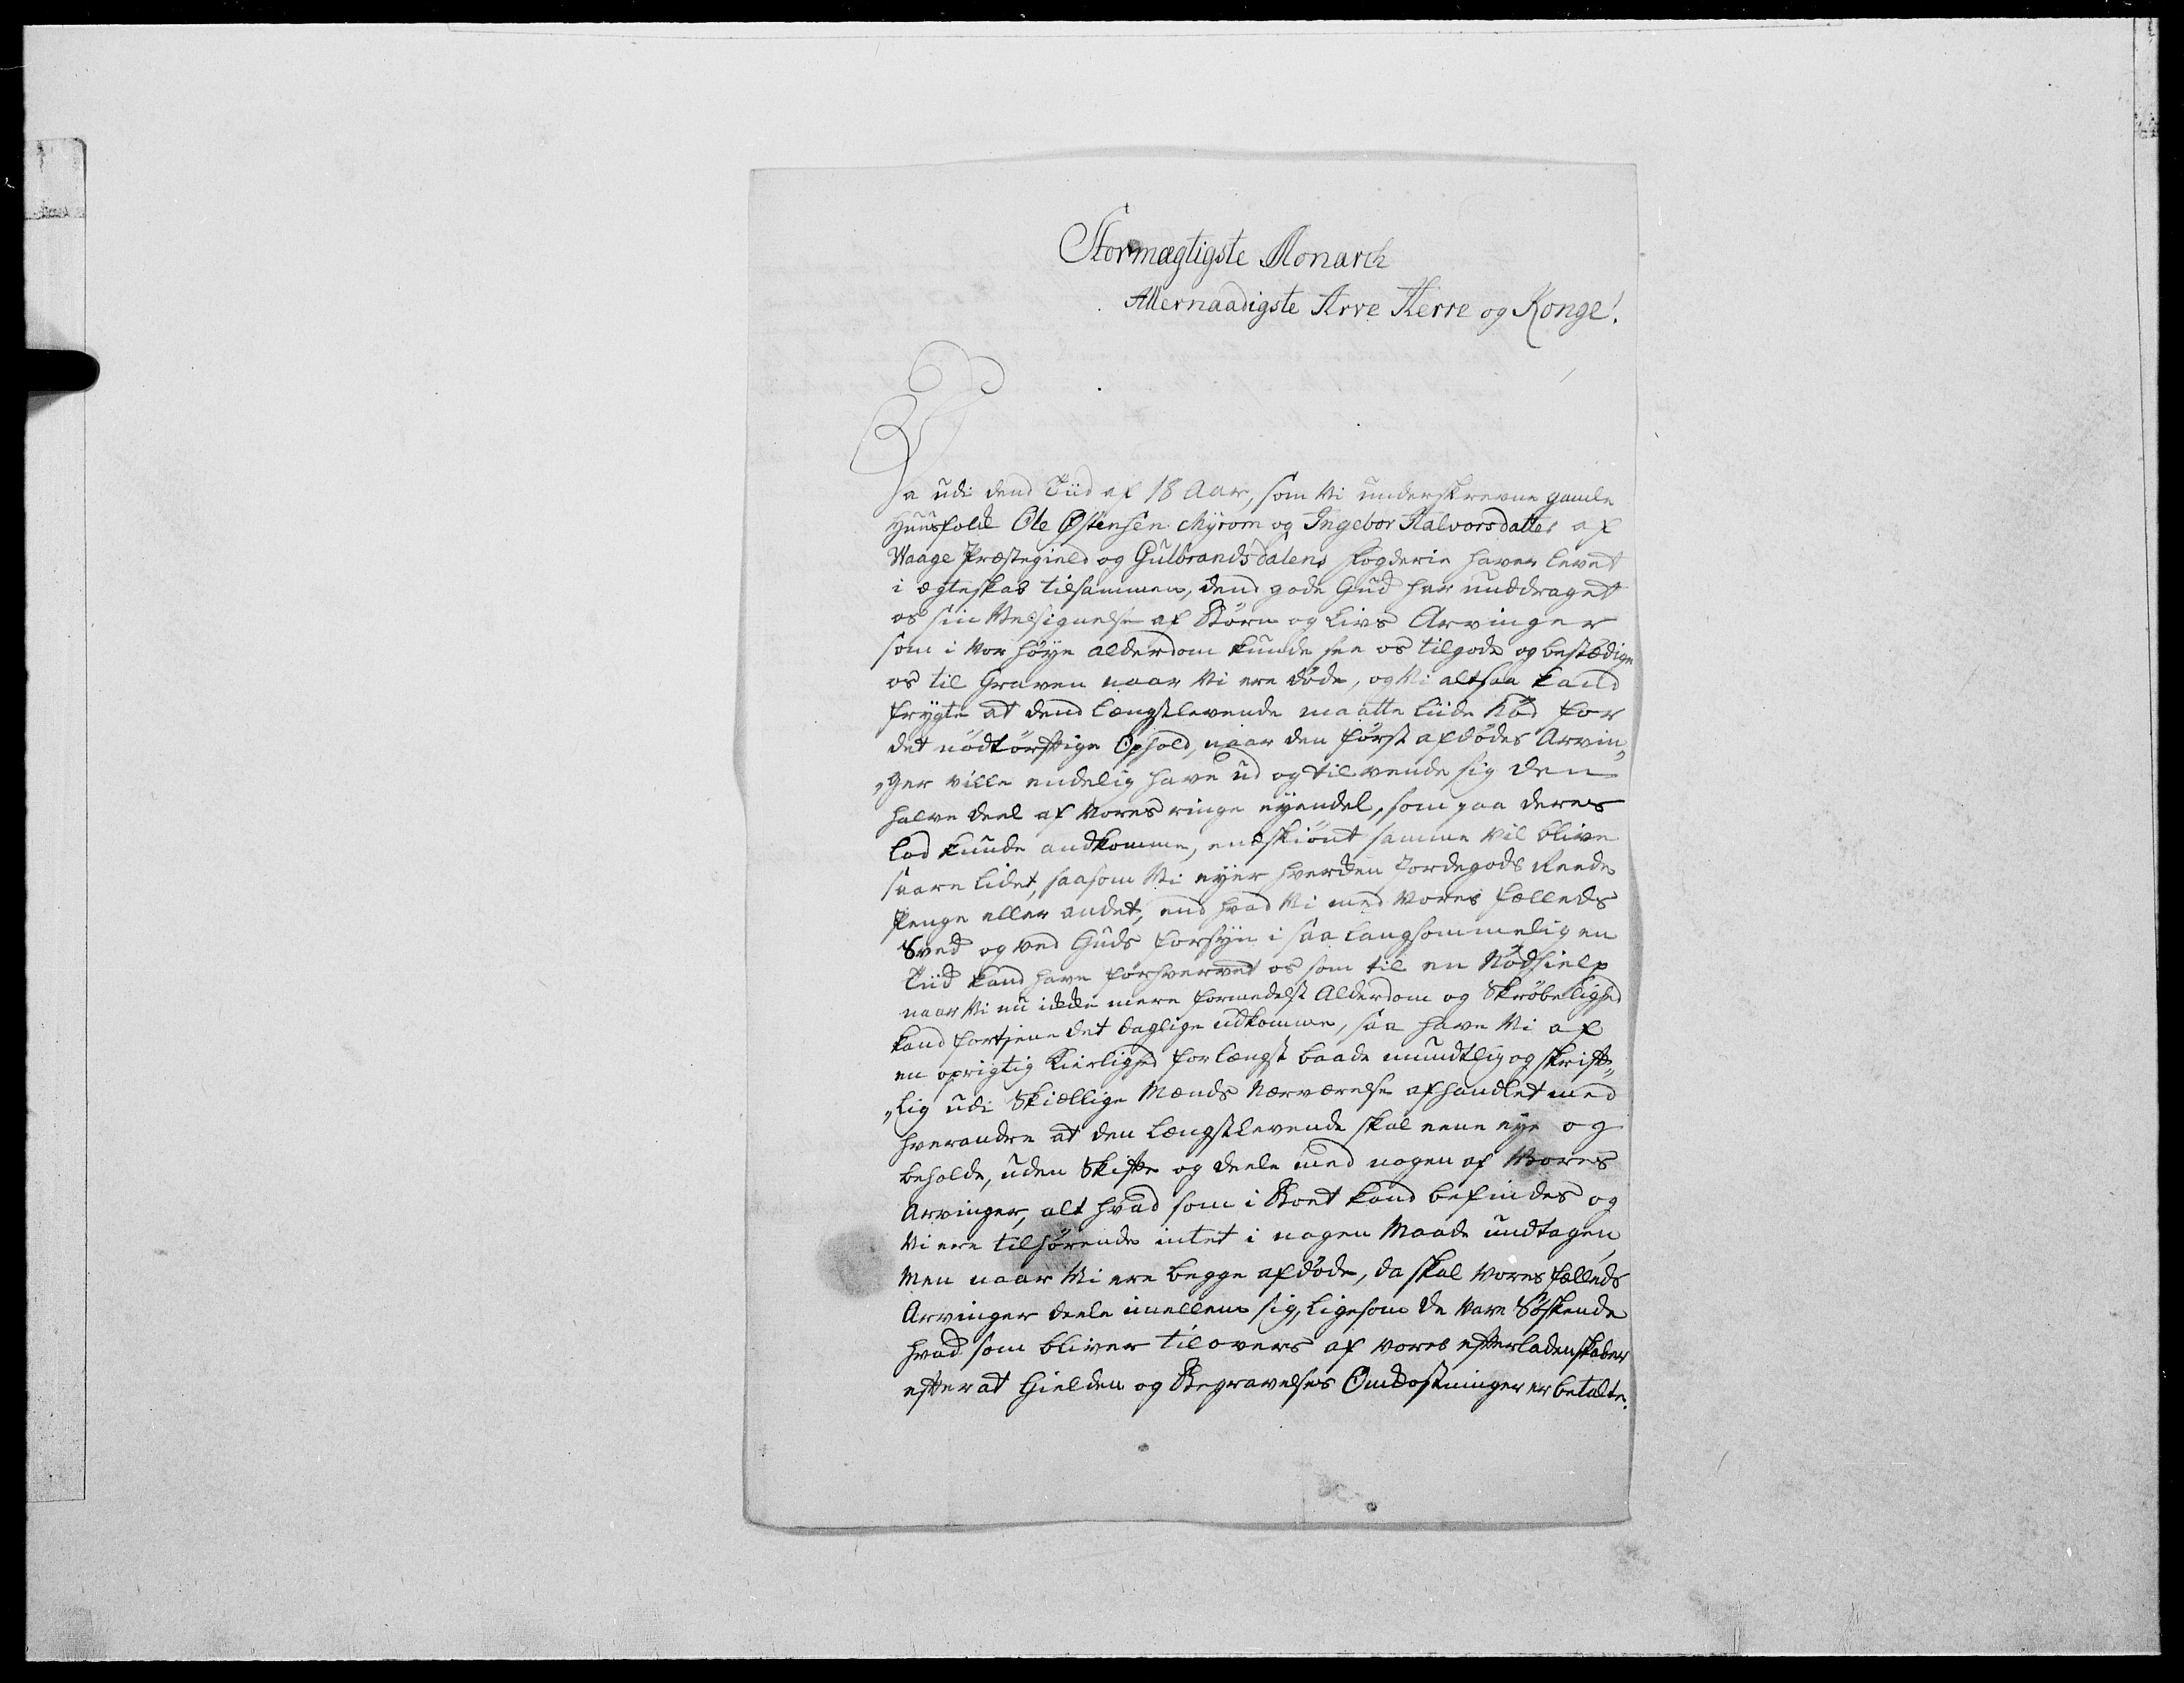 Stormægtigste Monarch
Allernaadigste Arve Herre og Konge!
Da udi dend Tiid af 18 Aar, som Vi underskrevne gamle
Huusfolk Ole Østensen Myrom og Ingebor Halvorsdatter af
Waage Præstegield og Gulbrandsdalens fogderie haver levet
i ægteskab tilsammen, dend gode Gud har unddraget
os sin Velsignelse af Börn og Livs Arvinger
som i Vor höye alderdom kunde see os tilgode og bestædige
os til Graven naar Vi ere döde, og Vi altsaa kand
frygte at dend længstlevende maatte liide Nöd for
det nödtörftige Ophold, naar den förstafdödes Arvin„
„ger ville endelig have ud og tilvende sig den
halve deel af Vores ringe eyendel, som paa deres
lod kunde andkomme, endskiönt samme Vil blive
saare lidet, saasom Vi eyer hverken Jordegods Reede
Penge eller andet, end hvad Vi med Vores fælleds
Sved og ved Guds forsyn i saa langsommelig en
Tiid kand have forhvervet os som til en Nödhielp
naar Vi nu ikke mere formedelst Alderdom og Skröbelighed
kand fortiene det daglige udkomme, saa have Vi af
en oprigtig Kierlighed forlængst baade mundtlig og skrift„
„lig udi Skiellige Mænds Nærværelse afhandlet med
hverandre at den Længstlevende skal eene eye og
beholde, uden Skifte og deele med nogen af Vores
Arvinger, alt hvad som i Boet kand befindes og
Vi ere tilhörende intet i nogen Maade undtagen,
Men naar Vi ere begge afdöde, da skal Vores fælleds
Arvinger deele imellem sig, ligesom de Vare Söskende
hvad som bliver tilovers af Vores efterladenskaber
efter at Gielden og Begravelses Omkostninger er betalte.